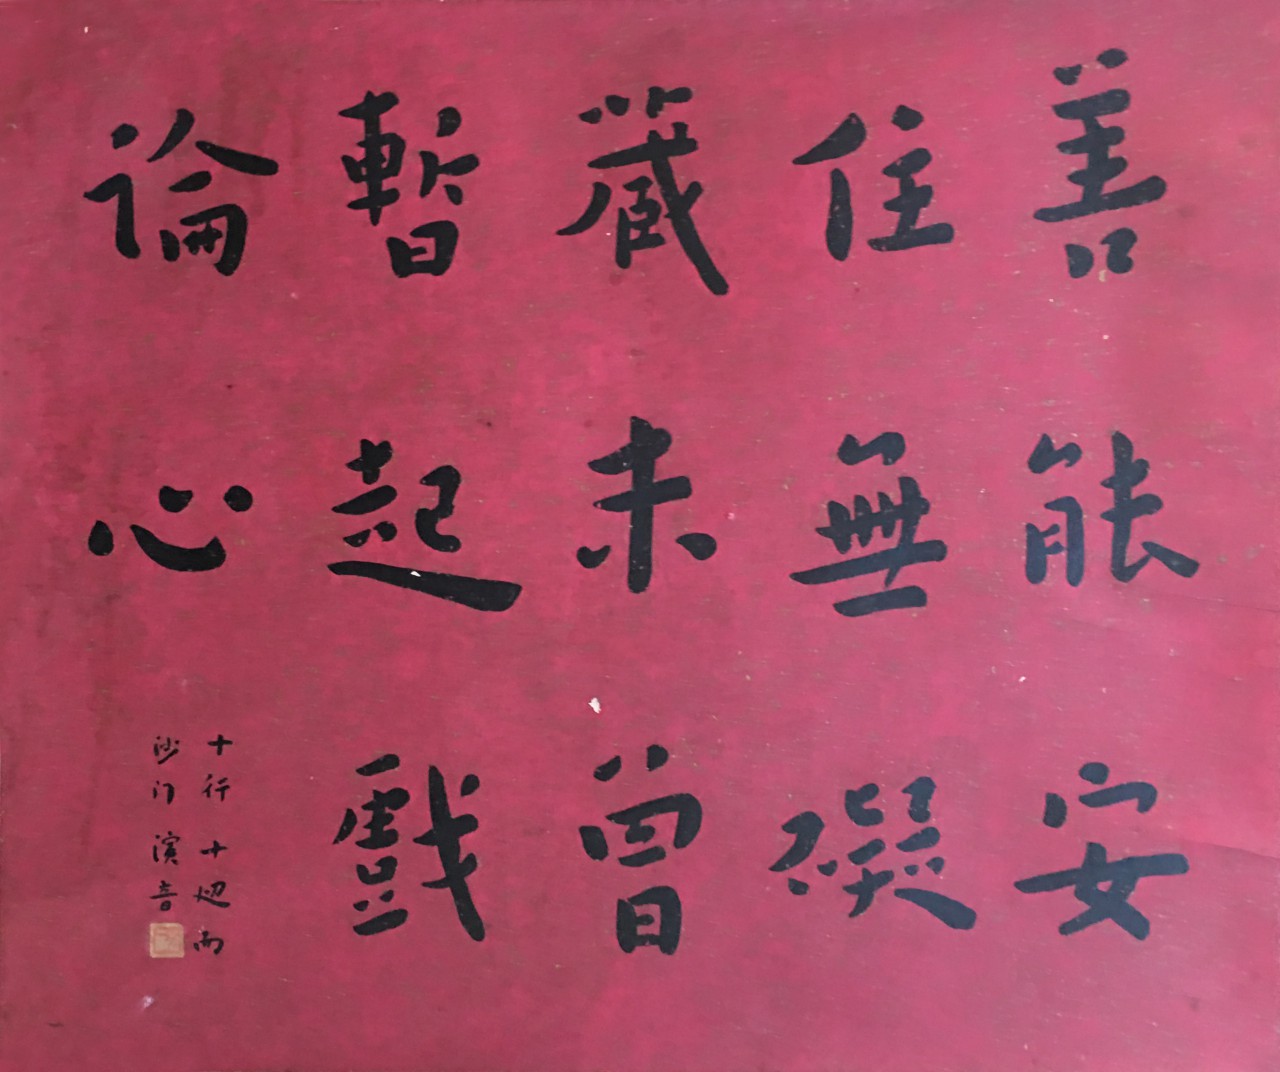 善能安
住無礙
藏未曾
暫起戲
論心
十行十廻向
沙門演音